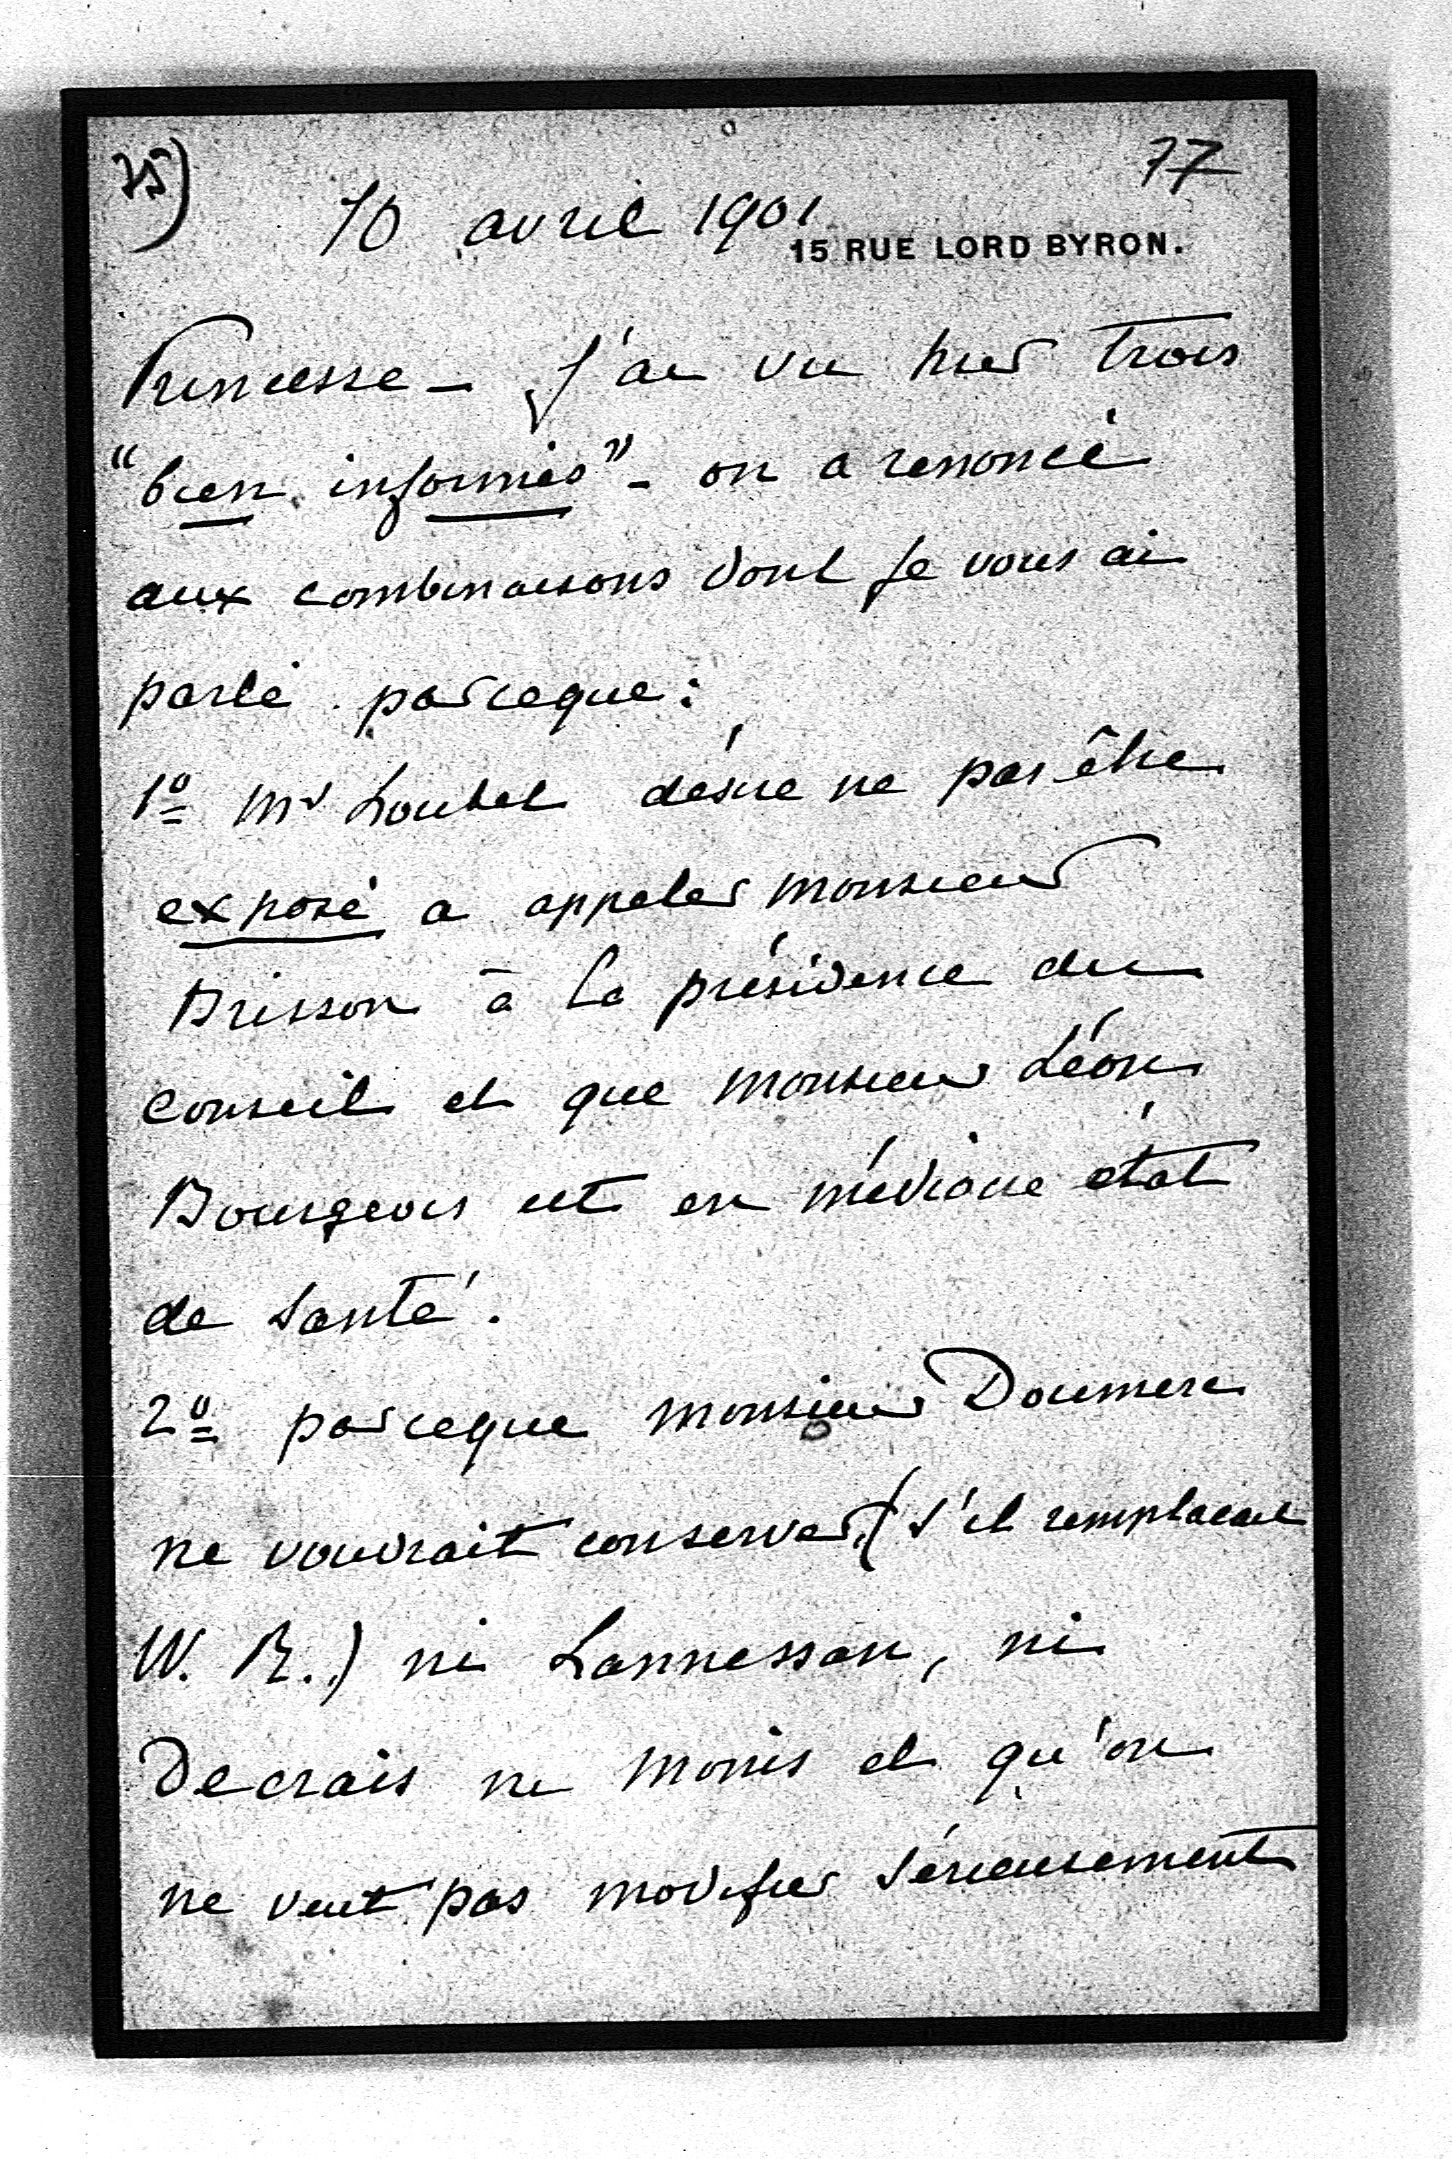 75)
77
10 avril 1901
15 RUE LORD BYRON.
Princesse – J'ai vu hier trois
"bien informés" – on a renoncé
aux combinaisons dont je vous ai
parlé parceque :
1º Mr Loubet désire ne pas être
exposé a appeler monsieur
Brisson à la présidence du
Conseil et que monsieur Léon
Bourgeois est en médiocre état
de santé.
2º parceque monsieur Doumer
ne voudrait conserver (s'il remplaçait
W. R.) ni Lannessan, ni
Decrais ni Monis et qu'on
ne veut pas modifier sérieusement